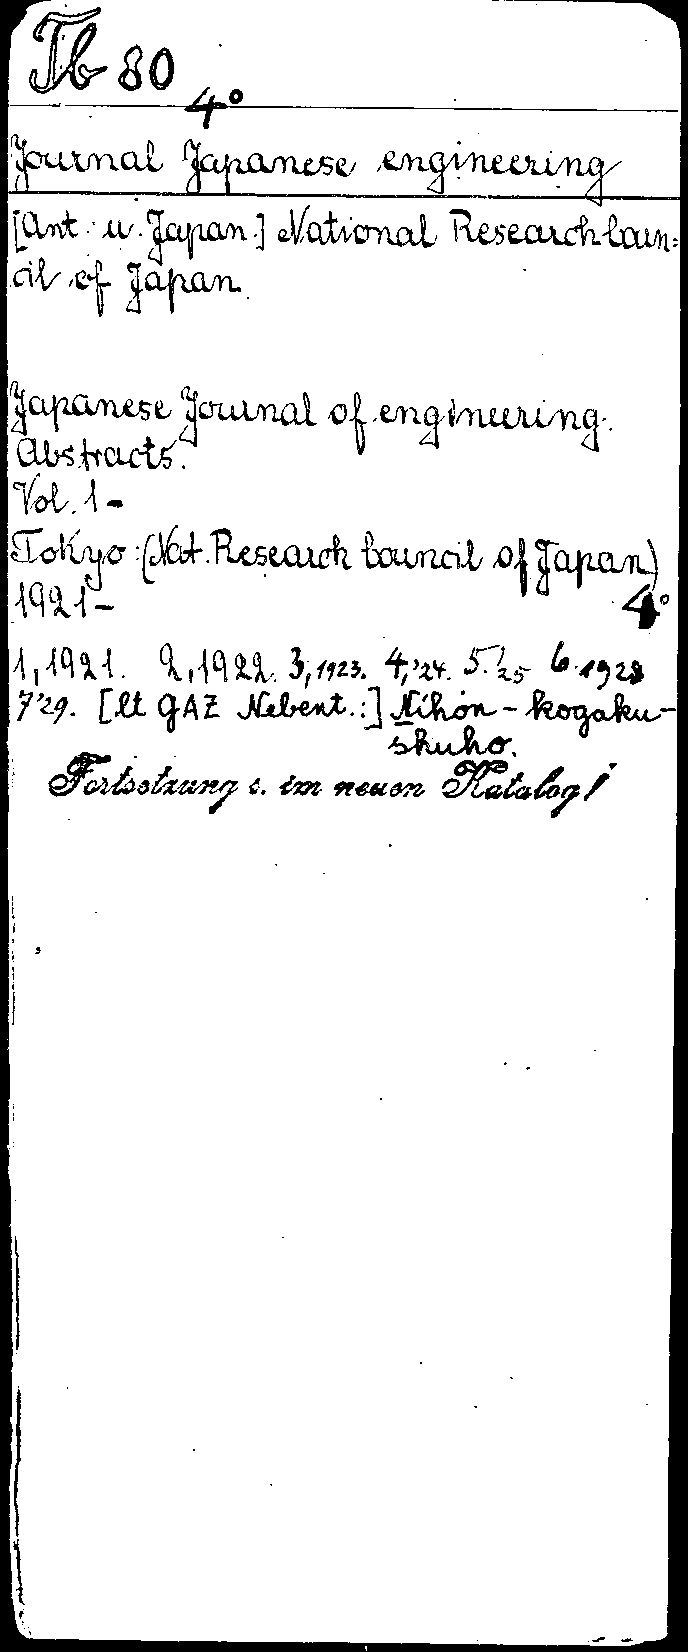 Tb 80
4°
Journal Japanese engineering
[Ant. u. Japan.] National Research Coun=
cil of Japan.
Japanese Journal of engineering.
Abstracts.
Vol. 1-
Tokyo: (Nat. Research Council of Japan)
1921-
4°
1, 1921. 2, 1922. 3, 1923. 4, '24. 5. '25 6. 1928
7 '29. [lt GAZ Nebent.:] Nihon-kogaku-
shuho.
Fortsetzung s. im neuen Katalog!